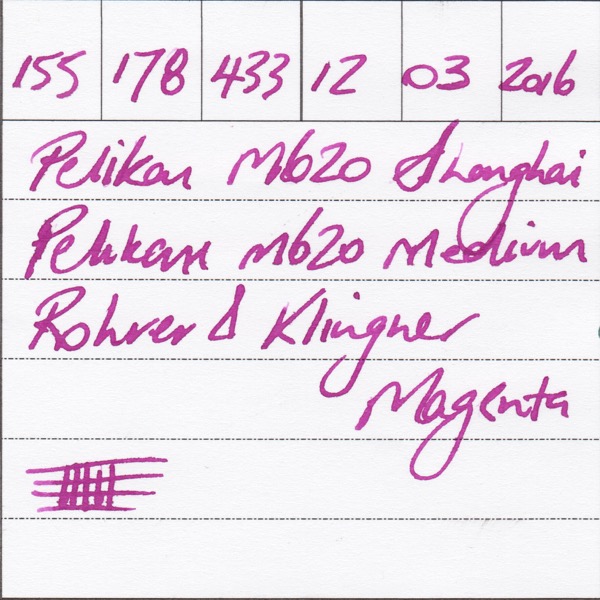 155 178 433 12 03 2016
Pelikan M620 Shanghai
Pelikan M620 Medium
Rohrer & Klingner
Magenta